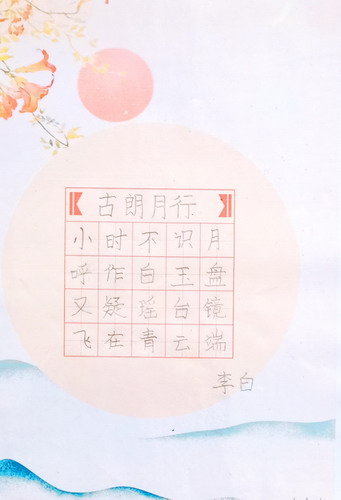 古朗月行
小时不识月
呼作白玉盘
又疑瑶台镜
飞在青云端
李白